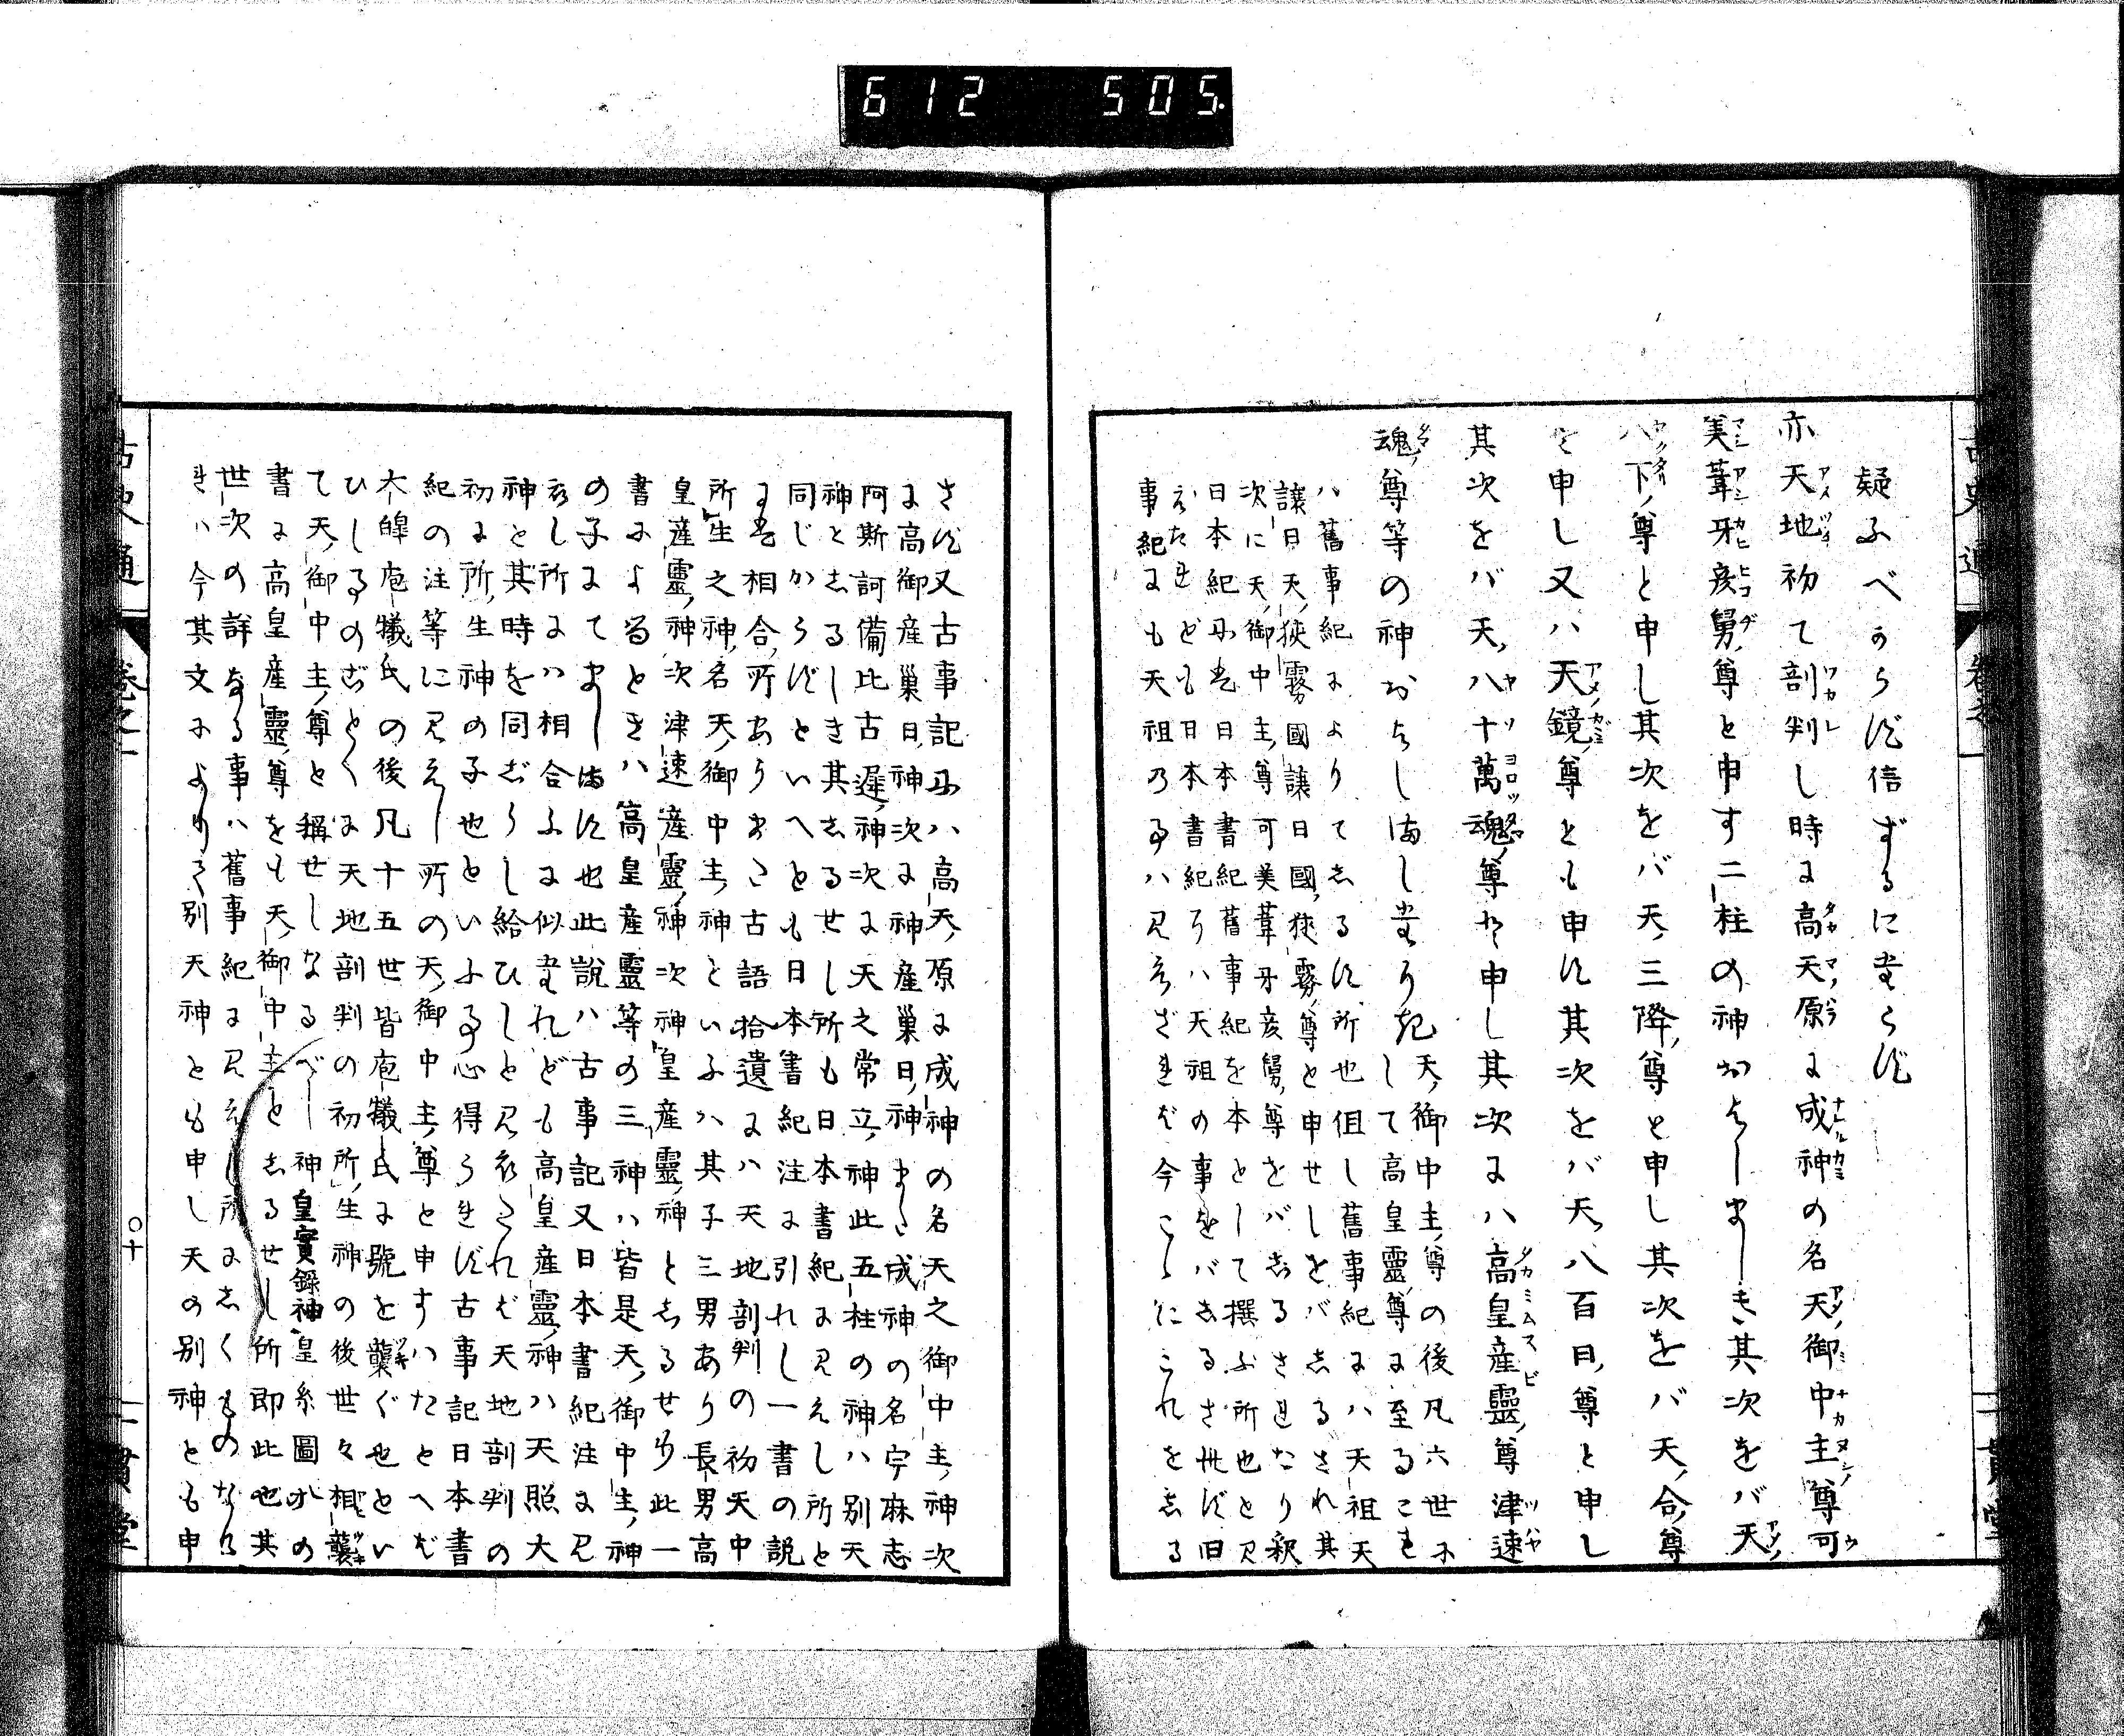 612 505.
疑ふべからず信ずるにあらず
亦天地初て剖判し時に高天原に成神の名天御中主尊可
美葦牙彦舅尊と申す二柱の神おはしましき其次をバ天
八下尊と申し其次をバ天三降尊と申し其次をバ天合尊
と申し又ハ天鏡尊とも申す其次をバ天八百日尊と申し
其次をバ天八十萬魂尊と申し其次にハ高皇産靈尊津速
魂尊等の神おはしましたりき
天御中主尊の後凡六世に
して高皇靈尊に至ること
ハ舊事紀によりてしるす所也但し舊事紀にハ天祖天
譲日天狹霧國譲日國狹霧尊と申せしをバしるされ其
次に天御中主尊可美葦牙彦舅尊をバしるされたり釈
日本紀にハ日本書紀舊事紀を本として撰ぶ所也と見
えたれども日本書紀にハ天祖の事をバしるされず旧
事紀にも天祖の事ハ見えざれば今こゝにこれをしる
さず又古事記にハ高天原に成神の名天之御中主神次
に高御産巣日神次に神産巣日神また成神の名宇麻志
阿斯訶備比古遅神次に天之常立神此五柱の神ハ別天
神としるしき其しるせし所も日本書紀に見えし所と
同じからずといへども日本書紀注に引れし一書の説
にハ相合所ありまた古語拾遺にハ天地剖判の初天中
所生之神名天御中主神といふハ其子三男あり長男高
皇産靈神次津速産靈神次神皇産靈神としるせり此一
書によるときハ高皇産靈等の三神ハ皆是天御中主神
の子にてまします也此説ハ古事記又日本書紀注に見
えし所にハ相合ふに似たれども高皇産靈神ハ天照大
神と其時を同じうし給ひしと見えたれば天地剖判の
初に所生神の子也といふ事心得られず古事記日本書
紀の注等に見えし所の天御中主尊と申すハたとへば
太皥庖犠氏の後凡十五世皆庖犠氏に號を襲ぐ也とい
ひしるのごとく天地剖判の初所生神の後世々相襲
て天御中主尊と稱せしなるべし神皇實錄神皇系圖の
書に高皇産靈尊をも天御中主としるせし所即此也其
世次の詳なる事ハ舊事紀に見えし所にしくものなし
きハ今其文により別天神とも申し天の別神とも申
古史通
卷之一
〇十
一貫堂